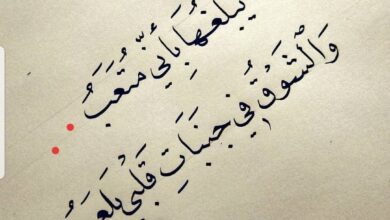 يبلغها بأنّي مُتعَبُ
وَالشَّوْقُ في جنَبَاتِ قَلبي يَلعَبُ